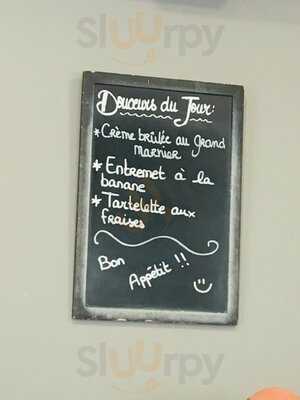 Sluurpy
Douceurs du Jour:
* Crème brûlée au Grand
Marnier
* Entremet à la
banane
* Tartelette aux
fraises
Bon
Appétit !!
Sluurpy